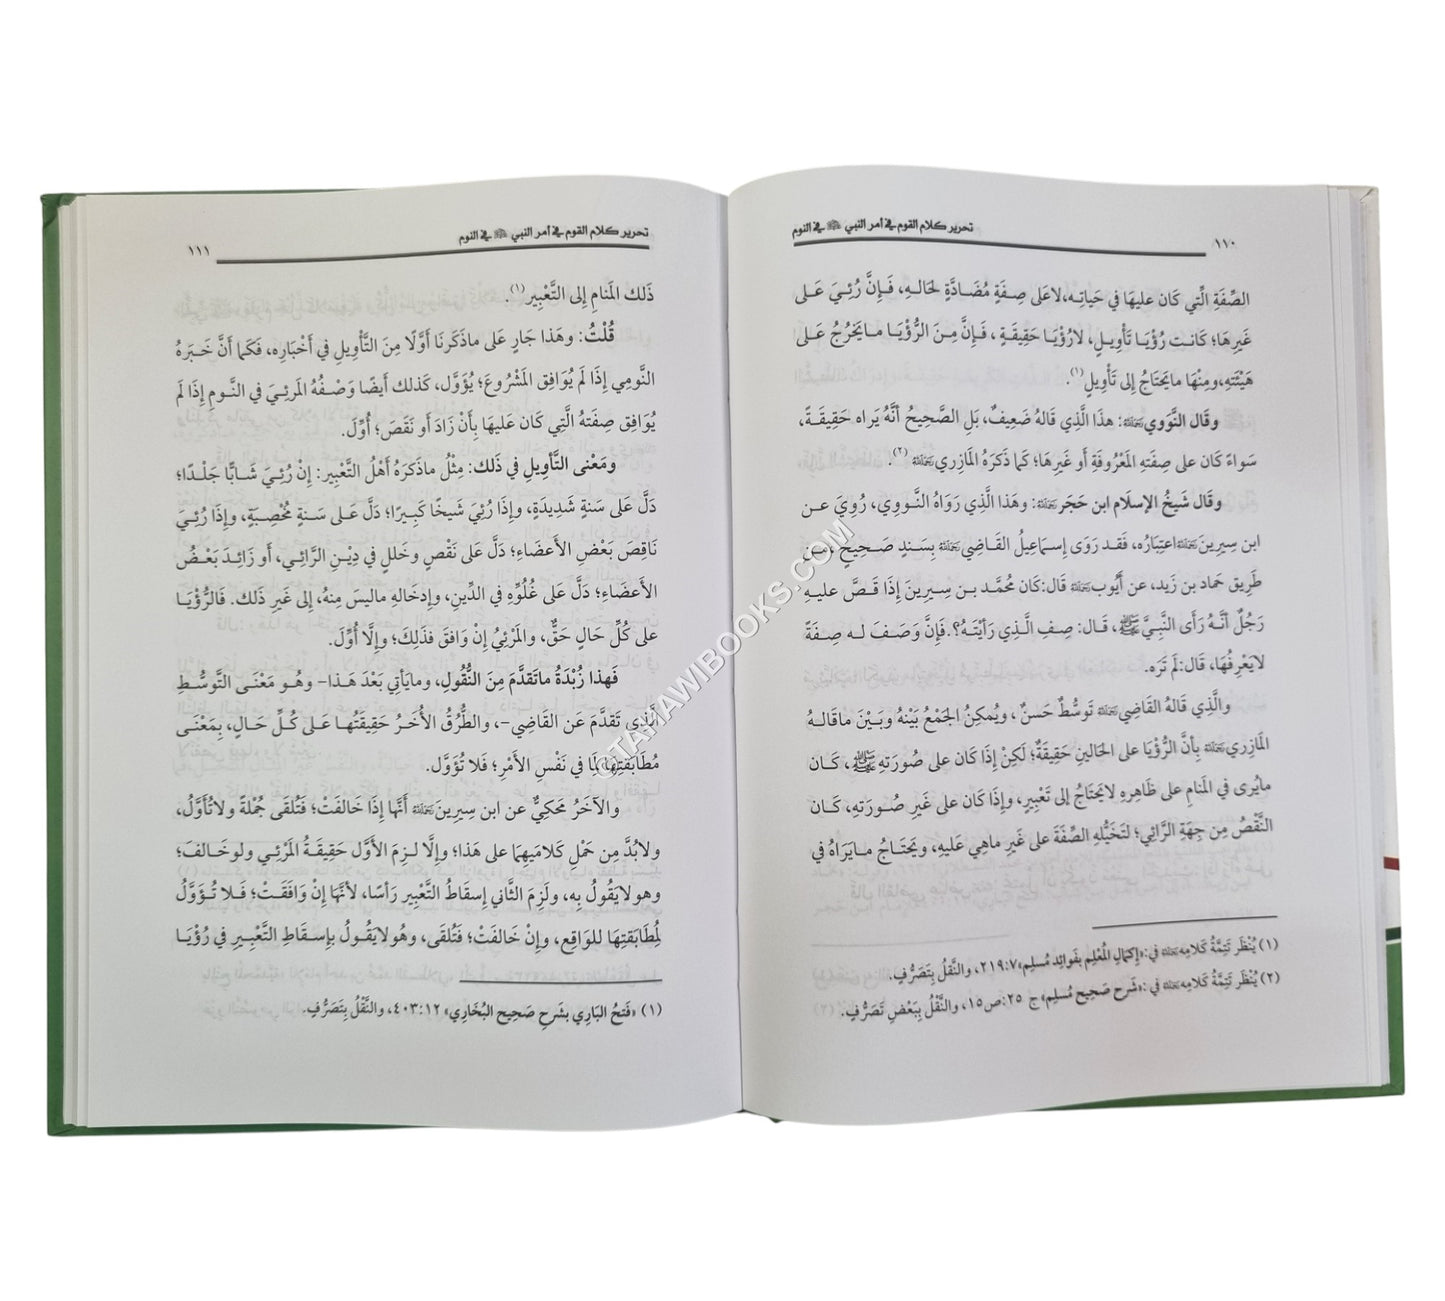 تحرير كلام القوم في أمر النبي ﷺ في النوم
١١٠
الصِّفَةِ الَّتي كَان عليهَا في حَياتِـه،لاعَلى صِفَةٍ مُضَادَّةٍ لحَالـهِ، فَـإِنَّ رُئِـيَ عَـلى
غَيرِهَا؛ كَانـت رُؤْيَـا تَأْوِيـلٍ، لَارُؤْيَـا حَقِيقَةٍ ، فَـإِنَّ مِـنَ الرُّؤْيَـا مـايَخْرُجُ عَـلى
هَيْئَتَهِ،ومِنْهَا مايَحْتَاجُ إلى تَأْوِيلٍ(١).
وقَال النَّوَوي رَحِمَهُ اللَّهُ: هذَا الَّذِي قَالهُ ضَعِيفٌ، بَلِ الصَّحِيحُ أنَّهُ يَراه حَقِيقَـةً،
سَواءً كَان على صِفَتهِ المَعْرُوفَةِ أو غَيرِهَا؛ كمَا ذَكَرَهُ المَازِري رَحِمَهُ اللَّهُ (٢).
وقَال شَيخُ الإسلَام ابن حَجَر رَحِمَهُ اللَّهُ: وهَذا الَّذِي رَوَاهُ النَّـووِي، رُوِيَ عَـن
ابن سِيرِينَ رَحِمَهُ اللَّهُ اعتِبَارُه، فَقَـد رَوَى إسـمَاعِيلُ القَـاضِي رَحِمَهُ اللَّهُ بِسَـندٍ صَـحِيحٍ ،مِـن
طَرِيق حمَاد بن زَيد، عن أَيُوب رَحِمَهُ اللَّهُ قَال:كَان مُحَمَّـد بـن سِـيرِينَ إذَا قَـصَّ عليـهِ
رَجُلٌ أنَّـهُ رَأَى النَّبِـيَّ ﷺ، قَـال: صِـفِ الَّـذِي رَأيتَـهُ؟. فَإنَّ وَصَـفَ لـه صِـفَةً
لايَعْرِفُهَا، قَال:لَم تَرَه.
والَّذِي قَالهُ القَاضِي رَحِمَهُ اللَّهُ تَوسُّطٌ حَسَنٌ ، ويُمكِنُ الجَمْعُ بَيْنَهُ وبَيْنَ ماقَالـهُ
المَازِري رَحِمَهُ اللَّهُ بأنَّ الرُّؤيَا على الحَالَينِ حَقِيقَةٌ؛ لَكِنْ إذَا كَان على صُورَتهِ ﷺ ، كَـان
مايُرى في المَنامِ على ظَاهرِهِ لايَحتَاجُ إلى تَعْبِيرٍ، وإذَا كَان على غَيرِ صُـورَتهِ، كَـان
النَّقْصُ مِن جِهَةِ الرَّائِي؛ لتَخَيُّلهِ الصِّفَةَ على غَيرِ ماهِي عَليهِ، ويَحتَـاجُ مـايَرَاهُ في
(١) يُنْظَر تَتِمَّةُ كَلامِه رَحِمَهُ اللَّهُ في: «إكمَالِ المُعْلِم بفَوائِد مُسلِم» ٢١٩:٧، والنَّقلُ بتَصَرُّفٍ.
(٢) يُنْظَر تَتِمَّةُ كَلامِهِ رَحِمَهُ اللَّهُ في: «شَرح صَحِيح مُسلِم» ج ٢٥:ص١٥، والنَّقْلُ ببَعْضِ تَصَرُّفٍ.
تحرير كلام القوم في أمر النبي ﷺ في النوم
١١١
ذَلك المَنامِ إلى التَّعْبِير(١).
قُلْتُ: وهَذا جَارٍ على ماذَكَرنَا أوَّلًا مِنَ التَّأْوِيلِ في أخْبَارِه، فَكمَا أنَّ خَبـرَهُ
النَّومِي إذَا لَم يُوَافِق المَشْرُوعَ؛ يُؤَوَّل، كَذلك أيضًا وَصْـفُهُ المَرئِـيَ في النَّـوم إذَا لَم
يُوَافِق صِفَتهُ الَّتِي كَان عَليهَا بأنْ زَادَ أو نَقَصَ؛ أُوِّلَ.
ومَعْنى التَّأوِيل في ذَلك: مِثْلُ ماذَكرَهُ أهْلُ التَّعْبِير: إنْ رُئِـيَ شَـابًّا جَلْـدًا؛
دَلَّ عَلى سَنةٍ شَدِيدَةٍ، وإذَا رُئِيَ شَيخًا كَبِيرًا؛ دَلَّ عَـلى سَـنةٍ مُخْصِـبَةٍ، وإذَا رُئِـيَ
نَاقِصَ بَعْضِ الأعضَاءِ؛ دَلَّ عَلى نَقْصٍ وخَللٍ في دِيْنِ الرَّائِـي، أو زَائِـدَ بَعْـضُ
الأعضَاءِ؛ دَلَّ عَلى غُلُوِّهِ في الدِّينِ، وإدخَالهِ مالَيسَ مِنهُ، إلى غَيرِ ذَلك. فَالرُّؤيَـا
على كُلِّ حَالٍ حَقٌّ، والمَرْئِيُ إنْ وَافقَ فذَلِكَ؛ وإلَّا أُوِّلَ.
فَهذا زُبْدَةُ ماتَقدَّمَ مِنَ النُّقُولِ، ومايَأتِي بَعْدَ هَـذا- وهُـو مَعْنَـى التَّوسُّـطِ
الَّذِي تَقدَّمَ عَن القَاضِي-، والطُّرُقُ الأُخَـرُ حَقِيقَتُهـا عَـلى كُـلِّ حَـالٍ، بِمَعْنَـى
مُطَابَقتِهَا لِمَا في نَفْسِ الأَمْرِ؛ فَلا تُؤَوَّل.
والآخَرُ مَحكِيٌّ عن ابن سِيرِينَ رَحِمَهُ اللَّهُ أنَّها إذَا خَالفَتْ؛ فَتُلقَى جُمْلةً ولاتُأوَّل،
ولابُدَّ مِن حَمْلِ كَلامَيهِمَا على هَذا؛ وإلَّا لـزِمَ الأوَّل حَقِيقَـةُ المَرْئِـي ولـو خَـالفَ؛
وهـو لايَقُولُ بِه، ولَزِمَ الثَّاني إسقَاطُ التَّعْبِير رَأسًـا، لأنَّهَا إنْ وَافَقَـتْ؛ فَـلا تُـؤَوَّلُ
لمُطَابَقتِهَا للوَاقِع، وإنْ خَالفَتْ؛ فَتُلقَى، وهُـو لايَقُولُ بإسـقَاطِ التَّعْبِيرِ في رُؤيَـا
(١) «فَتحُ البَارِي بشَرحِ صَحِيحِ البُخَارِي» ٤٠٣:١٢، والنَّقْلُ بتَصَرُّفٍ.
©TAHAWIBOOKS.COM